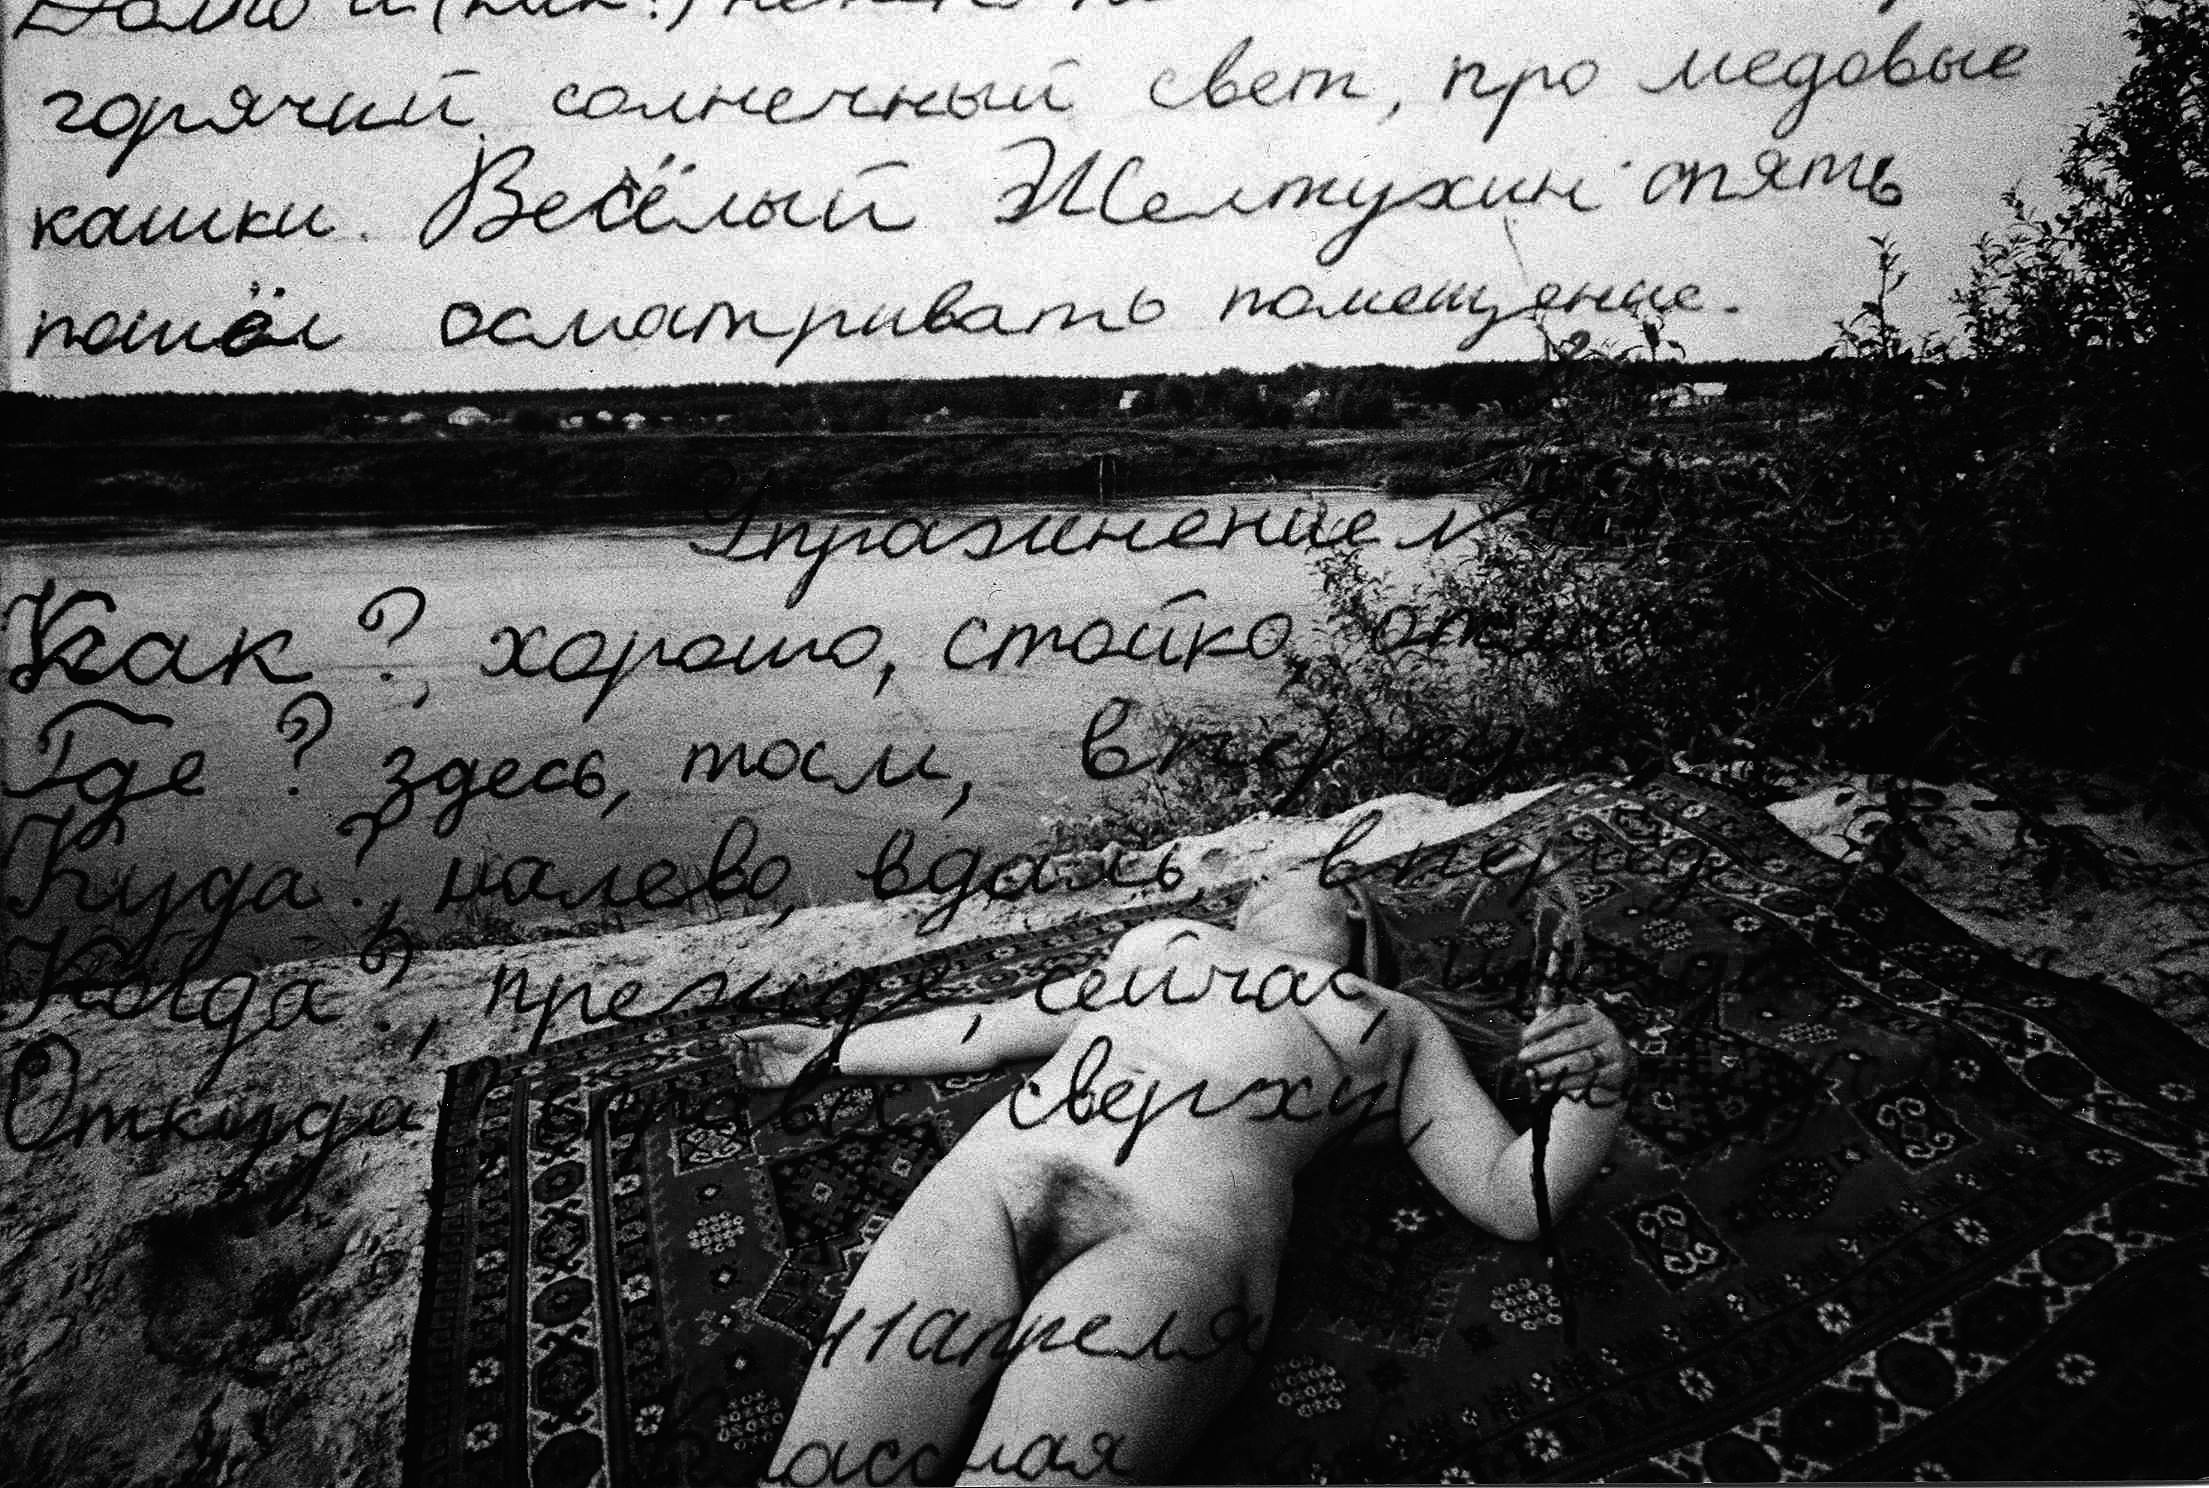 горячий солнечный свет, про медовые
кашки. Весёлый Желтухин опять
пошёл осматривать помещение.
Упражнение
Как?, хорошо, стойко,
Где? здесь, там,
Куда?, налево, вдаль, вперед
Когда?, прежде, сейчас,
Откуда? справа сверху,
11 апреля
Классная